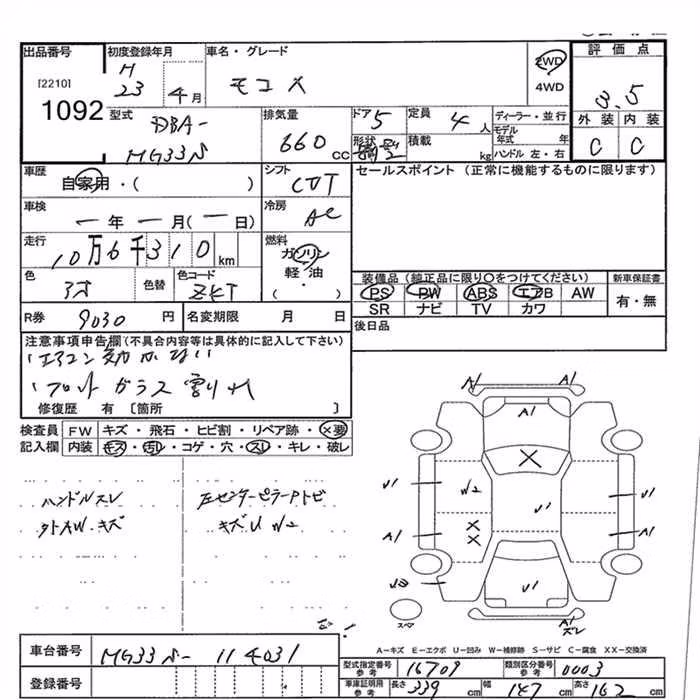 出品番号 初度登録年月 車名・グレード 2WD 4WD 評価点
[2210] H 23 4月 モコ X 3.5
1092 型式 DBA- 排気量 ドア 5 定員 4人 ディーラー・並行 外装 内装
MG33S 660cc 形状 積載 kg モデル年式 年 ハンドル 左・右 C C
車歴 自家用・( ) シフト CVT セールスポイント (正常に機能するものに限ります)
車検 一年 一月(一日) 冷房 AC
走行 10万6千310km 燃料 ガソリン 軽・油 ( )
色 色替 色コード ZKT 装備品(純正品に限り〇をつけてください) 新車保証書
PS PW ABS エアB AW 有・無
SR ナビ TV カワ
R券 9030円 名変期限 月 日 後日品
注意事項申告欄(不具合内容等は具体的に記入して下さい)
エアコン効かない
フロントガラス割れ
修復歴 有 [箇所 ]
検査員 FW キズ・飛石・ヒビ割・リペア跡・×要
記入欄 内装 キズ・汚レ・コゲ・穴・スレ・キレ・破レ
ハンドルスレ 左センターピラーPトビ
外AW.キズ キズU W2
A1 A1
A1
X
U1 W2 U1 U1
A1 X X A1
U3 U1
スペア A1 スレ
A-キズ E-エクボ U-凹み W-補修跡 S-サビ C-腐食 XX-交換済
車台番号 MG33S-114031
登録番号
型式指定番号 参考 16709 類別区分番号 参考 0003
車庫証明用 参考 長さ 339cm 幅 147cm 高さ 162cm